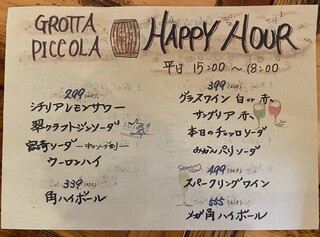 GROTTA
PICCOLA
HAPPY HOUR
平日 15:00 〜 18:00
299
シチリアレモンサワー
翠クラフトジンソーダ
ソーダ
ウーロンハイ
339
角ハイボール
399
グラスワイン 白or赤
サングリア 赤
本日のチェッロソーダ
みかんパリソーダ
499
スパークリングワイン
555
メガ角ハイボール